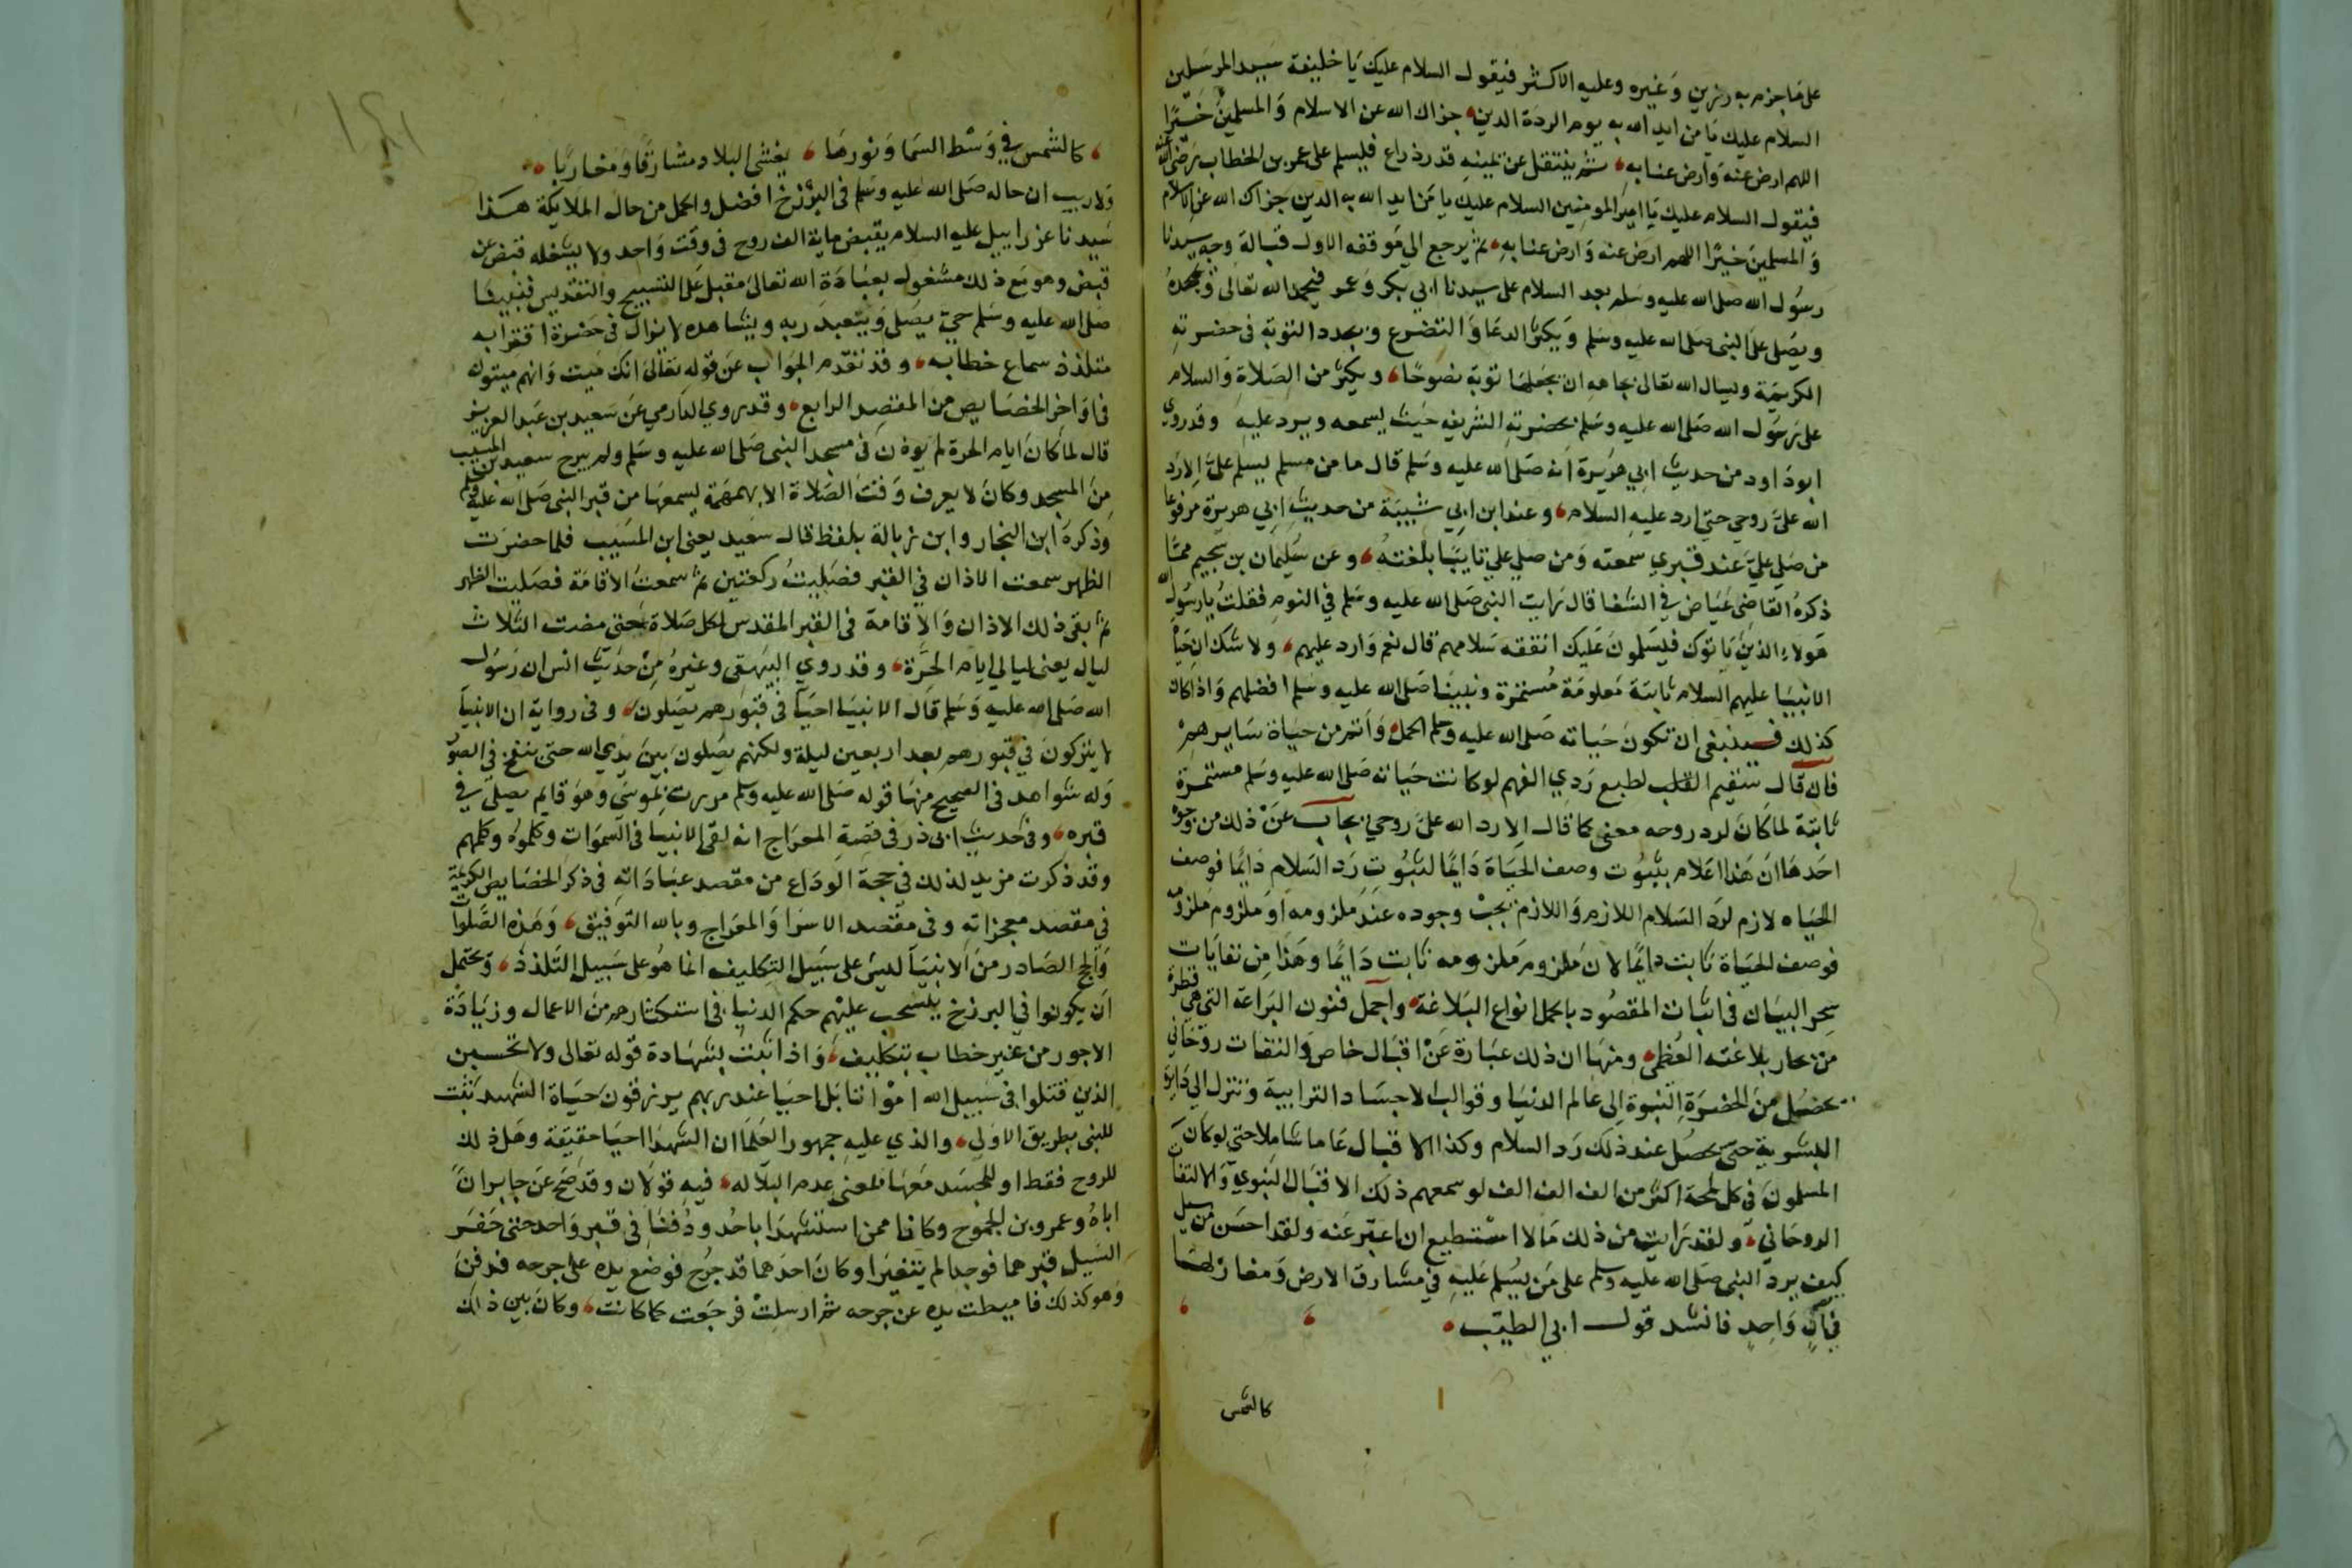 على ما جزم به رزين وغيره وعليه الاكثر فيقول السلام عليك يا خليفة سيد المرسلين
السلام عليك يا من ايد الله به يوم الردة الدين جزاك الله عن الاسلام والمسلمين خيرًا
اللهم ارض عنه وارض عنا به ثم ينتقل عن يمينه قدر ذراع فيسلم على عمر بن الخطاب رضي الله عنه
فيقول السلام عليك يا امير المومنين السلام عليك يا من ايد الله به الدين جزاك الله عن الاسلام
والمسلمين خيرًا اللهم ارض عنه وارض عنا به ثم يرجع الي موقفه الاول قبالة وجه سيدنا
رسول الله صلى الله عليه وسلم بعد السلام على سيدنا ابي بكر وعمر فيحمد الله تعالى ويمجده
ويصلي على النبي صلى الله عليه وسلم ويكثر الدعا والتضرع ويجدد التوبة في حضرته
الكريمة ويسال الله تعالى بجاهه ان يجعلها توبة نصوحًا ويكثر من الصلاة والسلام
على رسول الله صلى الله عليه وسلم بحضرته الشريفه حيث يسمعه ويرد عليه وقد روي
ابو داود من حديث ابي هريرة انه صلى الله عليه وسلم قال ما من مسلم يسلم علي الا رد
الله علي روحي حتى ارد عليه السلام وعند ابن ابي شيبة من حديث ابي هريرة مرفوعا
من صلى علي عند قبري سمعته ومن صلى علي نايبًا بلغته وعن سليمان بن سحيم مما
ذكره القاضي عياض في الشفا قال رايت النبي صلى الله عليه وسلم في النوم فقلت يا رسول الله
هولاء الذين ياتوك فيسلمون عليك اتفقه سلامهم قال نعم وارد عليهم ولا شك ان حياة
الانبيا عليهم السلام ثابتة معلومة مستمرة ونبينا صلى الله عليه وسلم افضلهم واذا كان
كذلك فينبغي ان تكون حياته صلى الله عليه وسلم اكمل واتم من حياة سايرهم
فان قال سقيم القلب لطبع ردي الفهم لو كانت حياته صلى الله عليه وسلم مستمرة
ثابتة لما كان لرد روحه معنى كما قال الا رد الله علي روحي يجاب عن ذلك من وجوه
احدها ان هذا اعلام بثبوت وصف الحياة دايمًا لثبوت رد السلام دايمًا فوصف
الحياه لازم لرد السلام اللازم واللازم يجب وجوده عند ملزومه او ملزوم ملزومه
فوصف الحياة ثابت دايمًا لان ملزوم ملزومه ثابت دايمًا وهذا من نفايات
سحر البيان في اثبات المقصود باكمل انواع البلاغة واجمل فنون البراعة التي هي قطرة
من بحار بلاغته العظمى ومنها ان ذلك عبارة عن اقبال خاص والتفات روحاني
يحصل من الحضرة النبوة الى عالم الدنيا وقوالب الاجساد الترابية وتنزل الي دايرة
البشرية حتى يحصل عند ذلك رد السلام وكذا الاقبال عاما شاملا حتى لو كان
المسلمون في كل لمحة اكثر من الف الف الف لوسعهم ذلك الاقبال النبوي والالتفات
الروحاني ولقد رايت من ذلك ما لا استطيع ان اعبر عنه ولقد احسن من سيل
كيف يرد النبي صلى الله عليه وسلم على من يسلم عليه في مشارق الارض ومغاربها
في آنٍ واحدٍ فانشد قول ابي الطيب
كالشمس
كالشمس في وسط السما ونورها يغشى البلاد مشارقًا ومغاربًا
ولا ريب ان حاله صلى الله عليه وسلم في البرزخ افضل واكمل من حال الملايكة هذا
سيدنا عزراييل عليه السلام يقبض ماية الف روح في وقت واحد ولا يشغله قبض عن
قبض وهو مع ذلك مشغول بعبادة الله تعالى مقبل على التسبيح والتقديس فنبينا
صلى الله عليه وسلم حي يصلي ويتعبد ربه ويشاهده لا يزال في حضرة اقترابه
متلذذ سماع خطابه وقد تقدم الجواب عن قوله تعالى انك ميت وانهم ميتون
في اواخر الخصايص من المقصد الرابع وقد روي الدارمي عن سعيد بن عبد العزيز
قال لما كان ايام الحرة لم يوذن في مسجد النبي صلى الله عليه وسلم ولم يبرح سعيد بن المسيب
من المسجد وكان لا يعرف وقت الصلاة الا بهمهمة يسمعها من قبر النبي صلى الله عليه وسلم
وذكره ابن النجار وابن زبالة بلفظ قال سعيد يعني ابن المسيب فلما حضرت
الظهر سمعت الاذان في القبر فصليت ركعتين ثم سمعت الاقامة فصليت الظهر
ثم بقى ذلك الاذان والاقامة في القبر المقدس لكل صلاة حتى مضت الثلاث
ليال يعني ليالي ايام الحرة وقد روي البيهقي وغيره من حديث انس ان رسول
الله صلى الله عليه وسلم قال الانبيا احيا في قبورهم يصلون وفي رواية ان الانبيا
لا يتركون في قبورهم بعد اربعين ليلة ولكنهم يصلون بين يدي الله حتى ينفخ في الصور
وله شواهد في الصحيح منها قوله صلى الله عليه وسلم مررت بموسى وهو قايم يصلي في
قبره وفي حديث ابي ذر في قصة المعراج انه لقى الانبيا في السموات وكلموه وكلمهم
وقد ذكرت مزيد لذلك في حجة الوداع من مقصد عباداته في ذكر الخصايص الكريمة
في مقصد معجزاته وفي مقصد الاسرا والمعراج وبالله التوفيق وهذه الصلوات
والحج الصادر من الانبيا ليس على سبيل التكليف انما هو على سبيل التلذذ ويحتمل
ان يكونوا في البرزخ ينسحب عليهم حكم الدنيا في استكثارهم من الاعمال وزيادة
الاجور من غير خطاب بتكليف واذا ثبت بشهادة قوله تعالى ولا تحسبن
الذين قتلوا في سبيل الله امواتا بل احيا عند ربهم يرزقون حياة الشهيد ثبت
للنبي بطريق الاولى والذي عليه جمهور العلما ان الشهدا احيا حقيقة وهل ذلك
للروح فقط او للجسد معها لمعنى عدم البلا له فيه قولان وقد صح عن جابر ان
اباه وعمرو بن الجموح وكانا ممن استشهدا باحد ودفنا في قبر واحد حتى حفر
السيل قبرهما فوجدا لم يتغيرا وكان احدهما قد جرح فوضع يده على جرحه فدفن
وهو كذلك فاميطت يده عن جرحه ثم ارسلت فرجعت كما كانت وكان بين ذلك